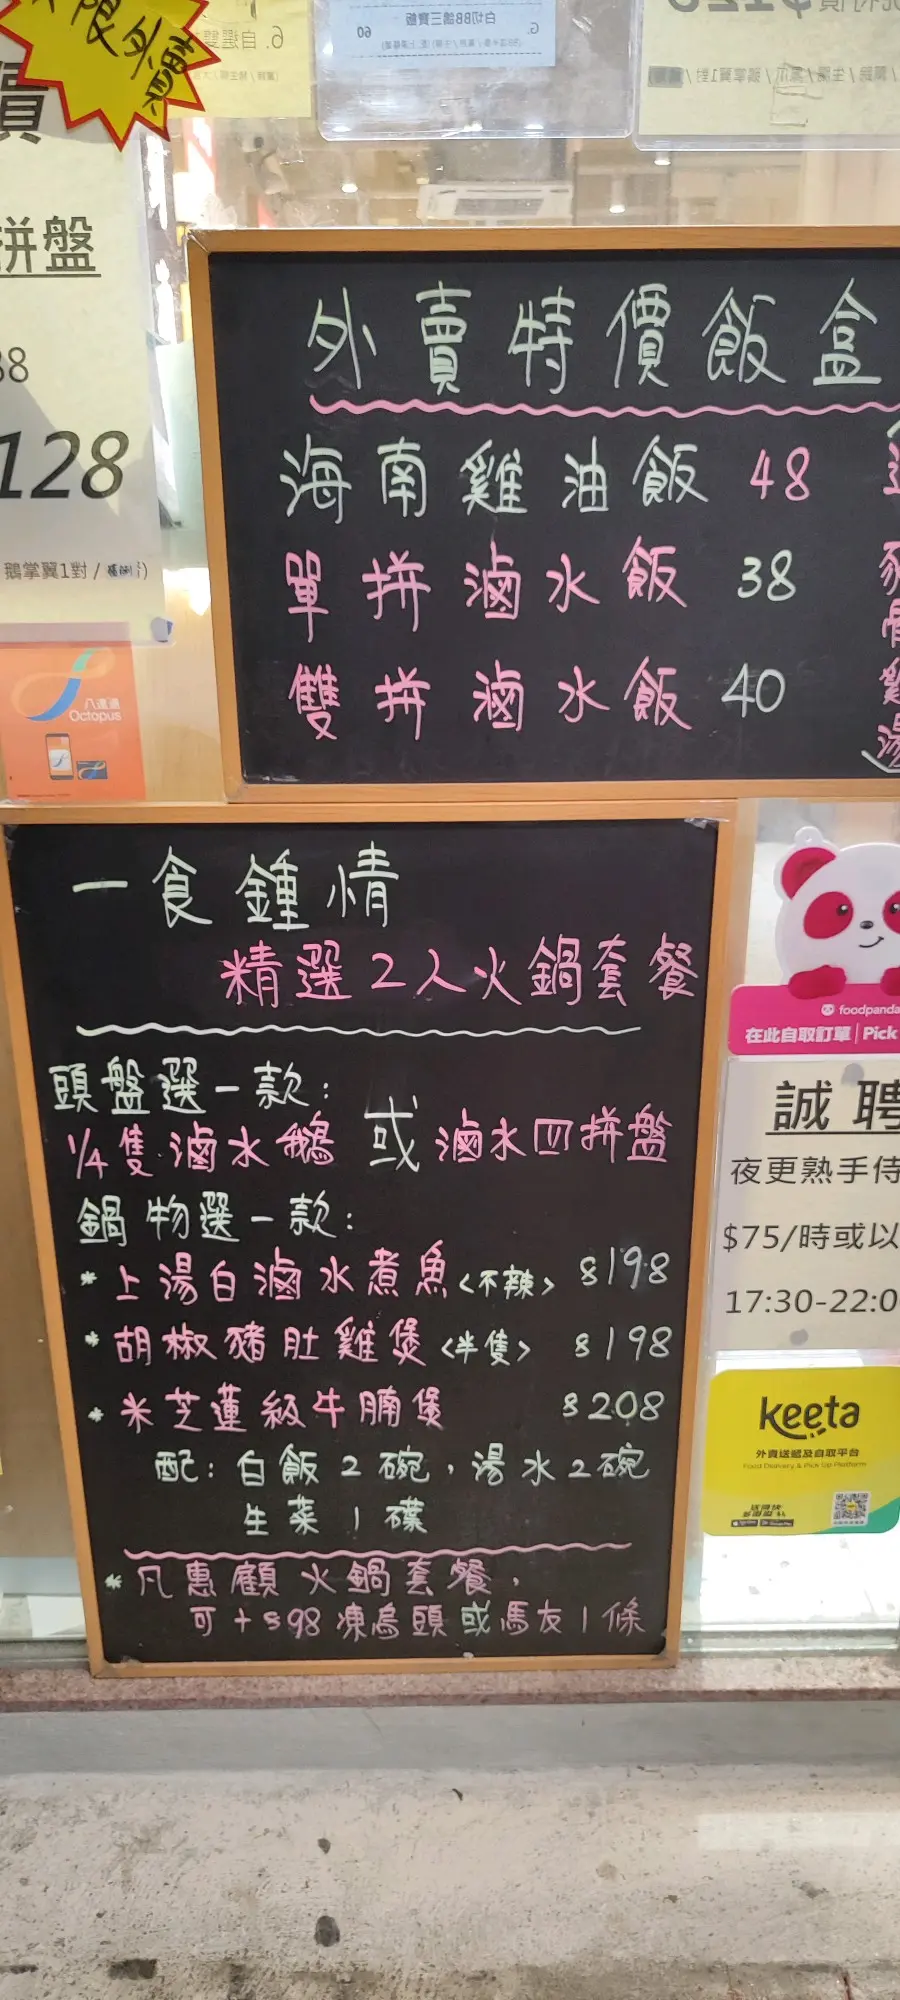 限外賣
拼盤
128
鵝掌翼1對 /
八達通
Octopus
外賣特價飯盒
海南雞油飯 48
單拼滷水飯 38
雙拼滷水飯 40
一食鍾情
精選2人火鍋套餐
頭盤選一款:
1/4隻滷水鵝 或 滷水四拼盤
鍋物選一款:
* 上湯白滷水煮魚<不辣> $198
* 胡椒豬肚雞煲<半隻> $198
* 米芝蓮級牛腩煲 $208
配: 白飯2碗,湯水2碗
生菜1碟
* 凡惠顧火鍋套餐,
可+$98凍烏頭或馬友1條
foodpanda
在此自取訂單 | Pick
誠聘
夜更熟手侍
$75/時或以
17:30-22:0
keeta
外賣送遞及自取平台
Food Delivery & Pick Up Platform